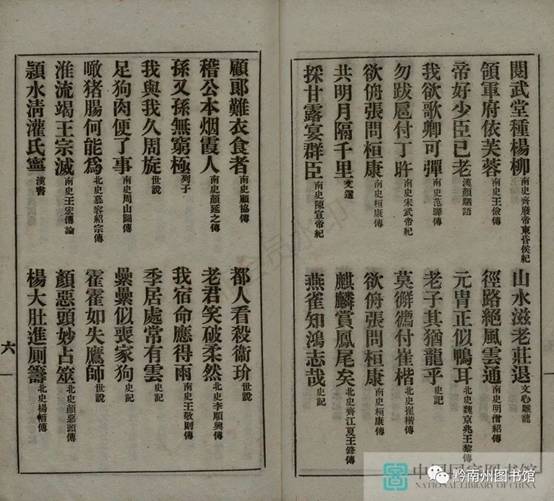 閱武堂種楊柳 南史齊廢帝東昏侯紀
山水滋老莊退 文心雕龍
領軍府依芙蓉 南史王儉傳
徑路絕風雲通 南史明僧紹傳
帝好少臣已老 漢顏駟語
元冑正似鴨耳 北史魏京兆王黎傳
我欲歌卿可彈 南史范曄傳
老子其猶龍乎 史記
勿跋扈付丁旿 南史宋武帝紀
莫付崔楷 北史崔楷傳
欲侜張問桓康 南史桓康傳
欲侜張問桓康 南史桓康傳
共明月隔千里 文選
麒麟賞鳳尾矣 北史齊江夏王鋒傳
採甘露宴群臣 南史陳宣帝紀
燕雀知鴻志哉 史記
顧郎難衣食者 南史顧協傳
都人看殺衛玠 世說
稽公本烟霞人 南史顏延之傳
老君笑破柔然 北史李順興傳
孫又孫無窮極 列子
我宿命應得雨 南史王敬則傳
我與我久周旋 世說
季居處常有雲 史記
足狗肉便了事 南史周山圖傳
纍纍似喪家狗 史記
噉猪腸何能為 北史慕容紹宗傳
霍霍如失鷹師 世說
淮流竭王宗滅 南史王宏傳論
顏惡頭妙占筮 北史顏惡頭傳
潁水清灌氏寧 漢書
楊大肚進厠籌 北史楊愔傳
六
NATIONAL LIBRARY OF CHINA
黔南州图书馆